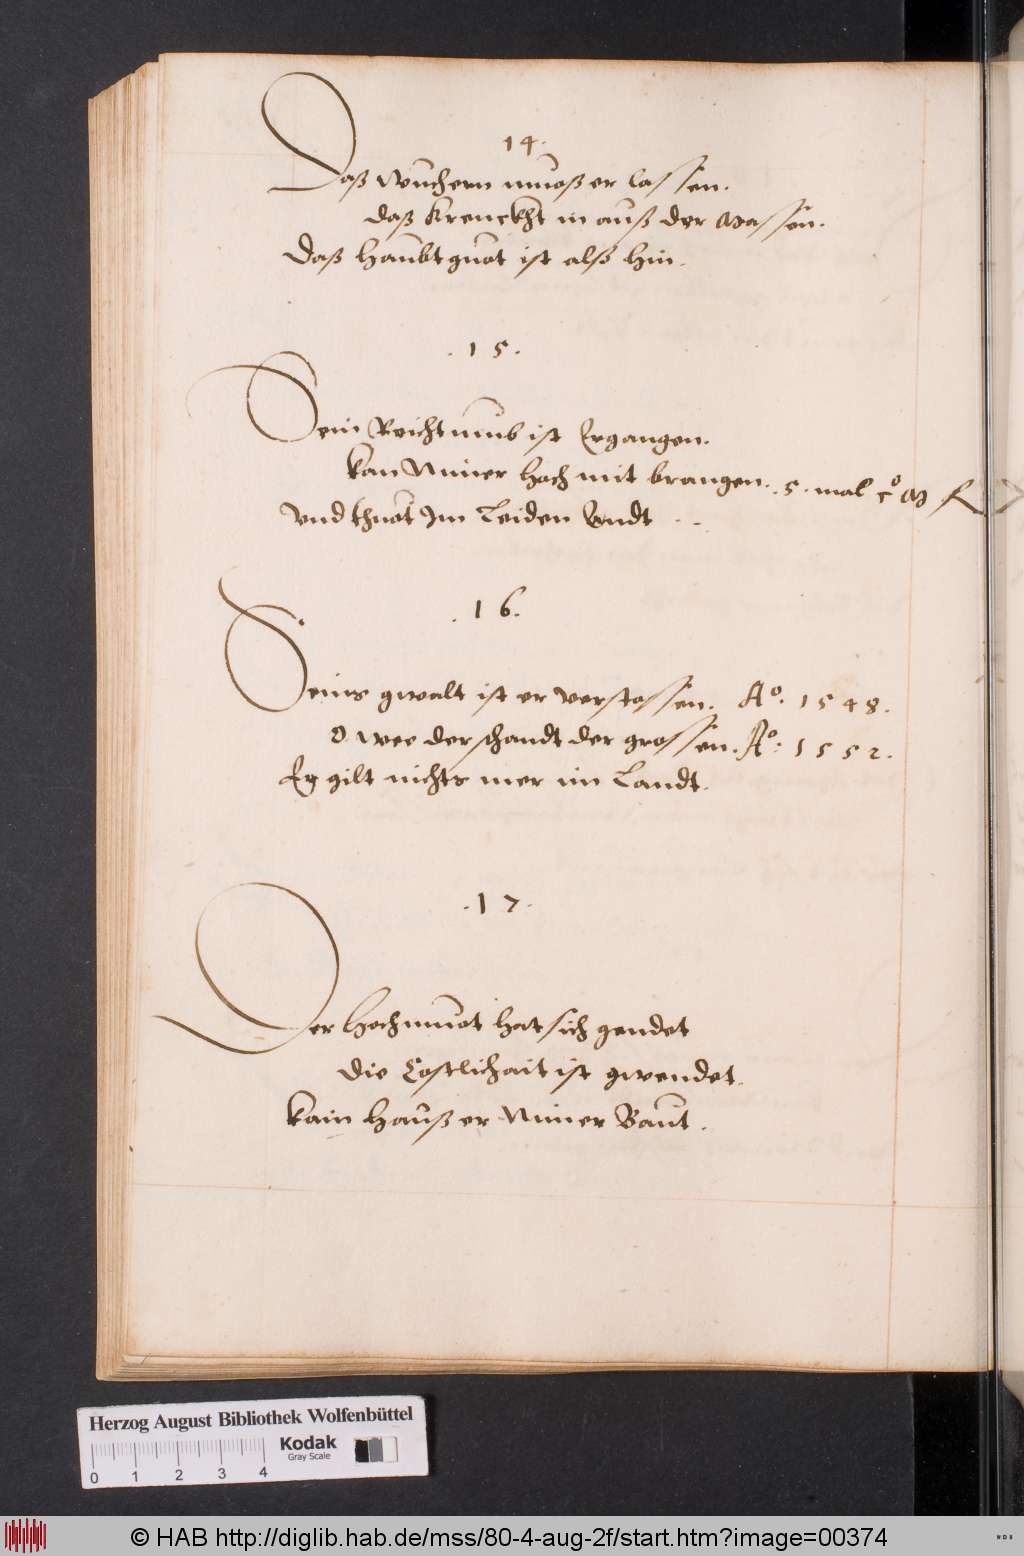 14.
Daß Wuchern muoß er lassen.
daß Krenckht in auß der Massen.
Daß Haubtguot ist alß hin.
.15.
Sein Reichtumb ist Ergangen.
kan Nimer hoch mit brangen. .5. mal c° M fl
Vnd thuot Im Leiden Andt
.16.
Seins gwalt ist er verstossen. A°. 1548.
O wee der schandt der grossen. A°: 1552.
Er gilt nichts mer im Landt.
.17.
Der Hochmuot hat sich gendet
die Costlichait ist gwendet.
kain Hauß er Nimer Baut.
Herzog August Bibliothek Wolfenbüttel
Kodak
Gray Scale
0 1 2 3 4
© HAB http://diglib.hab.de/mss/80-4-aug-2f/start.htm?image=00374